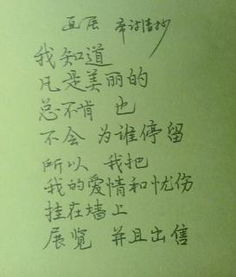 画展 席诗情抄
我知道
凡是美丽的
总不肯 也
不会 为谁停留
所以 我把
我的爱情和忧伤
挂在墙上
展览 并且出售